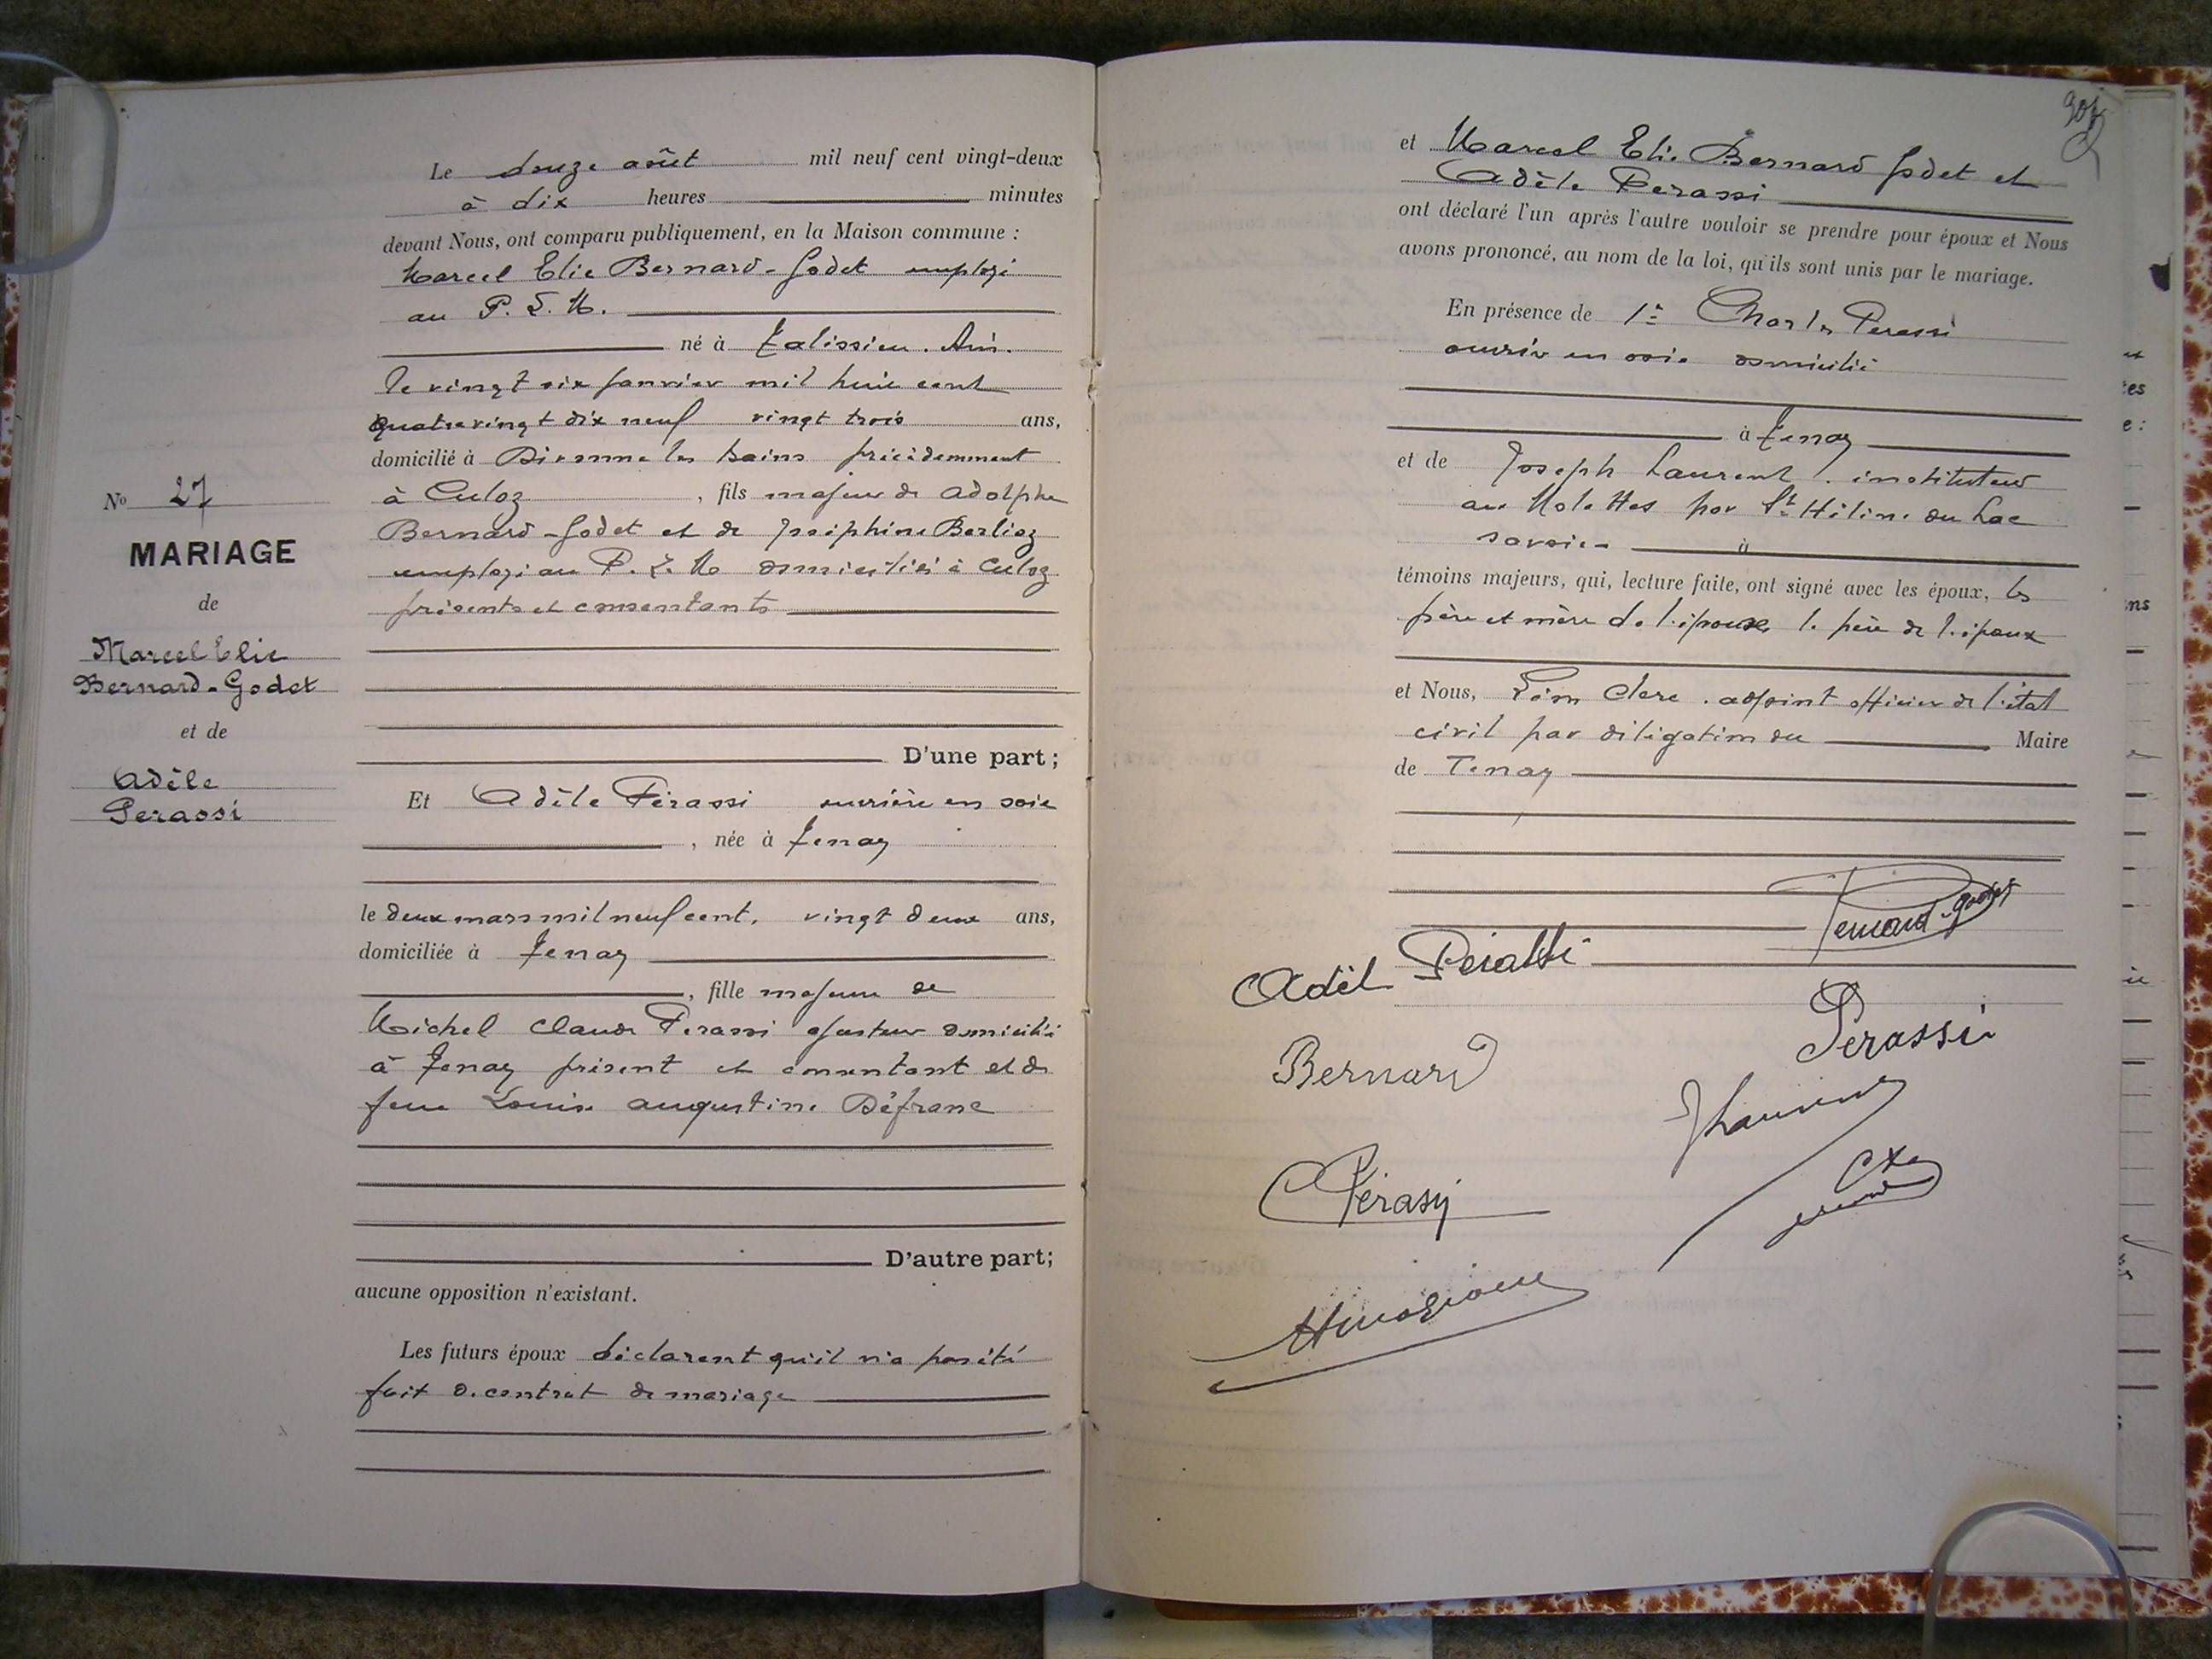 Le douze août mil neuf cent vingt-deux
à dix heures minutes
devant Nous, ont comparu publiquement, en la Maison commune :
Marcel Elie Bernard-Godet employé
au P. L. M.
né à Talissieu. Ain.
le vingt six janvier mil huit cent
quatre vingt dix neuf vingt trois ans,
domicilié à Divonne les bains précédemment
à Culoz , fils majeur de Adolphe
Bernard-Godet et de Joséphine Berlioz
employé au P. L. M domiciliés à Culoz
présents et consentants
D'une part ;
No 27
MARIAGE
de
Marcel Elie
Bernard-Godet
et de
Adèle
Perassi
Et Adèle Pérassi ouvrière en soie
, née à Tenay
le deux mars mil neuf cent. vingt deux ans,
domiciliée à Tenay
, fille majeure de
Michel Claude Perassi ajusteur domicilié
à Tenay présent et consentant et de
feue Louise Augustine Défranc
D'autre part ;
aucune opposition n'existant.
Les futurs époux déclarent qu'il n'a pas été
fait de contrat de mariage
et Marcel Elie Bernard Godet et
Adèle Perassi
ont déclaré l'un après l'autre vouloir se prendre pour époux et Nous
avons prononcé, au nom de la loi, qu'ils sont unis par le mariage.
En présence de 1º Charles Perassi
ouvrier en soie domicilié
à Tenay
et de Joseph Laurent. instituteur
aux Molettes par St Hélène du Lac
savoie à
témoins majeurs, qui, lecture faite, ont signé avec les époux, les
père et mère de l'épouse, le père de l'époux
et Nous, Léon Clerc. adjoint officier de l'état
civil par délégation du Maire
de Tenay
Bernard-Godet
Adèl Pérassi
Perassi
Bernard
JLaurent
CPérassi